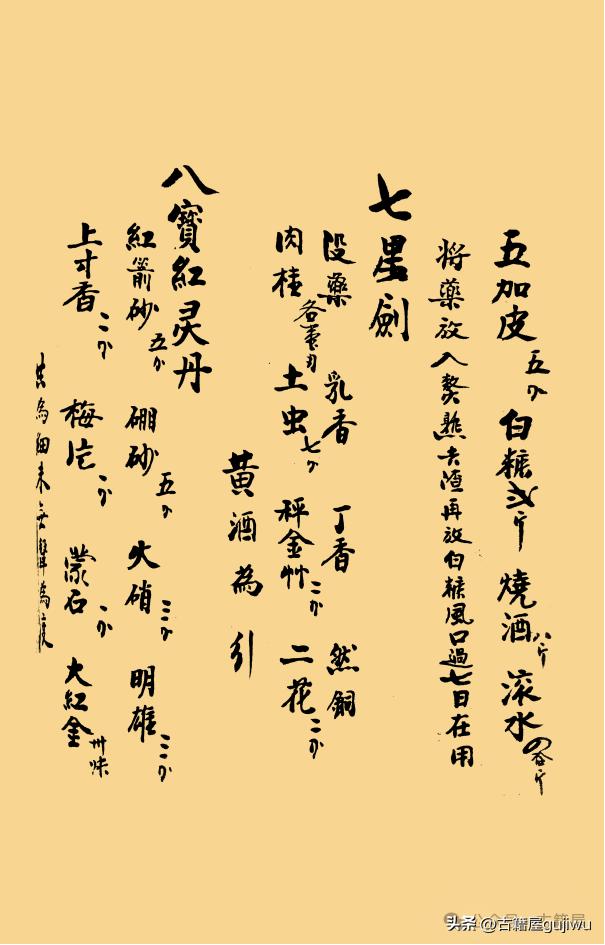 五加皮五分 白糖弍斤 燒酒八斤 滚水四斤
將藥放入熬熟去渣再放白糖風口過七日在用
七星劍
没藥 乳香 丁香 然銅
肉桂各壹刃 土虫七分 秤金艸二分 二花二分
黄酒為引
八寶紅灵丹
紅箭砂五分 硼砂五分 火硝三分 明雄三分
上寸香二分 梅片一分 蒙石一分 大紅金卅味
共為細末無聲為度
头条 @古籍屋gujiwu